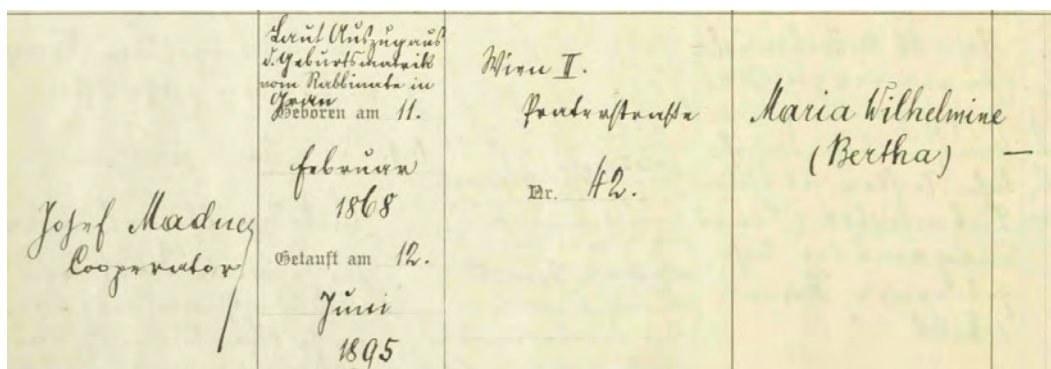 Josef Madner
Cooperator
Laut Auszug aus
d. Geburtsmatrik
vom Rabbinate in
Gran
Geboren am 11.
Februar
1868
Getauft am 12.
Juni
1895
Wien II.
Praterstraße
Nr. 42.
Maria Wilhelmine
(Bertha)
—